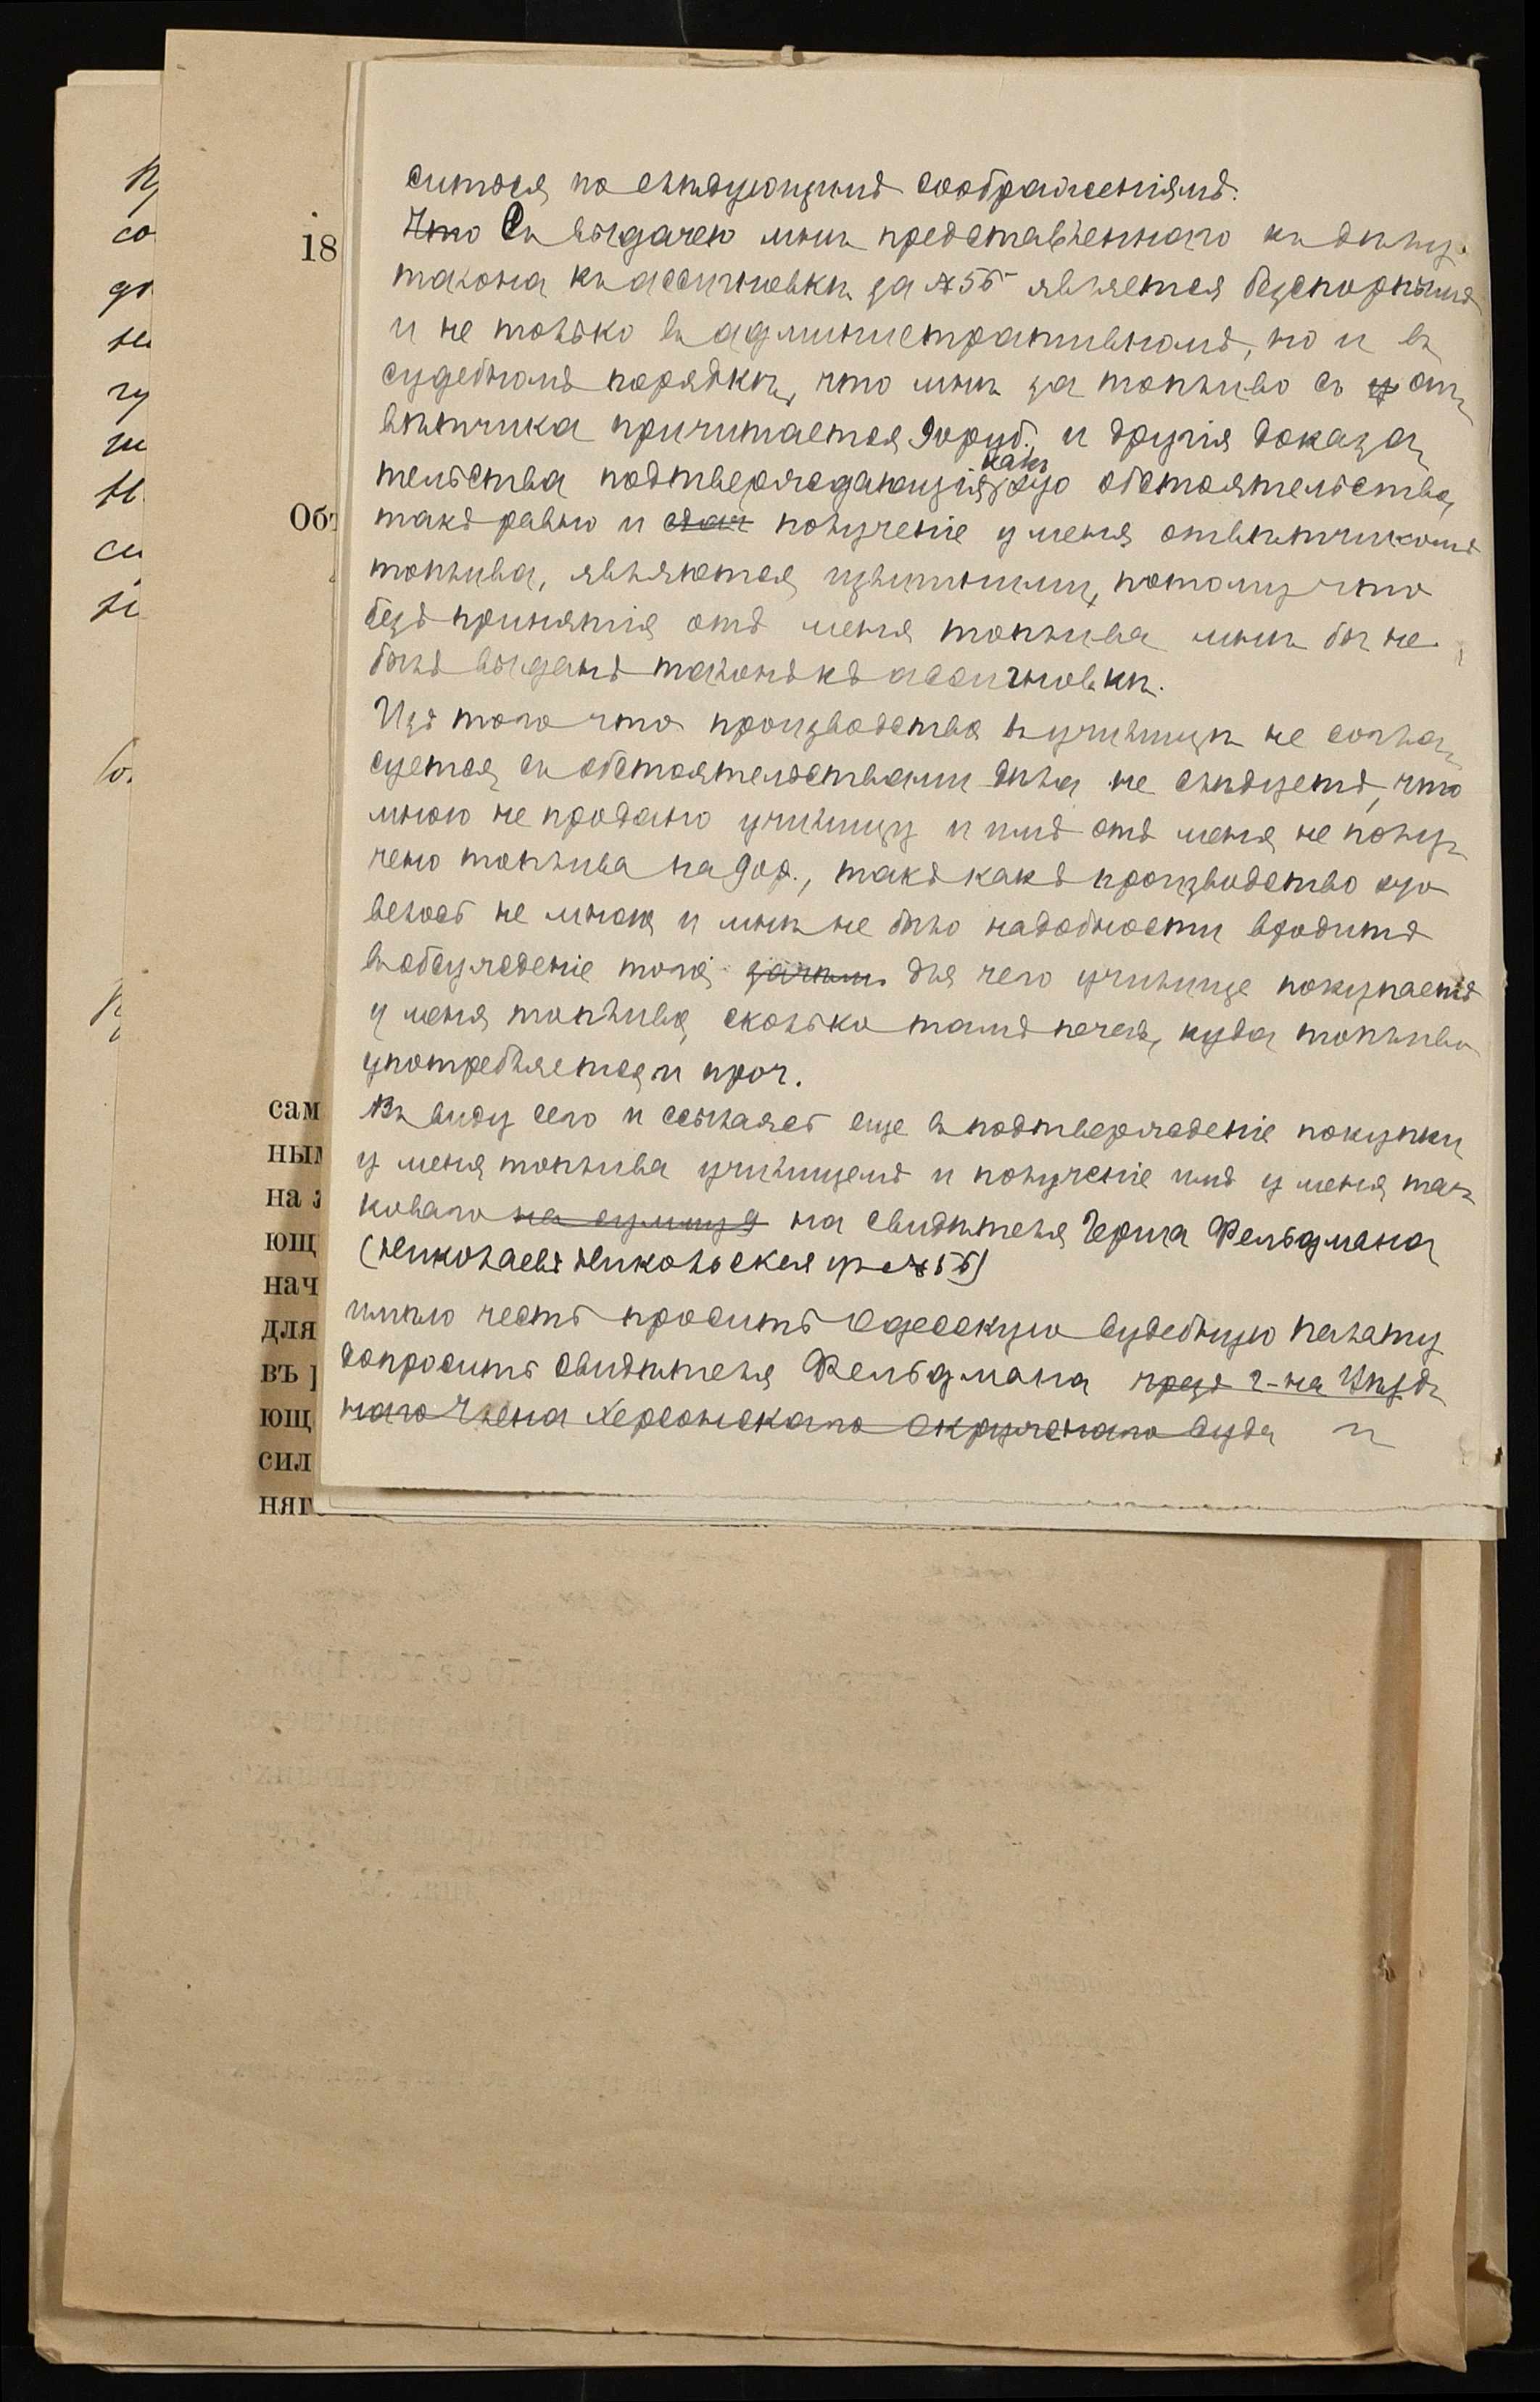 ситься по слѣдующимъ соображеніямъ.
Что Съ выдачею мнѣ представленнаго къ дѣлу
талона къ ассигновкѣ за №55 является безспорнымъ
и не только въ административномъ, но и въ
судебномъ порядкѣ, что мнѣ за топливо съ от
вѣтчика причитается 90 руб. и другія доказа
тельства подтверждающія какъ сіо обстоятельства,
такъ равно и сдач полученіе у меня отвѣтчикомъ
топлива, являются излишними, потому что
безъ принятія отъ меня топлива мнѣ бы не
былъ выданъ талонъ къ ассигновкѣ.
Изъ того что производства въ училищѣ не согла
суется съ обстоятельствами дѣла не слѣдуетъ, что
мною не продано училищу и имъ отъ меня не полу
чено топлива на 90 р., такъ какъ производство сіо
велось не мною и мнѣ не было надобности входить
въ обсужденіе того, зачѣмъ для чего училище покупаетъ
у меня топлива, сколько тамъ печей, куда топливо
употребляется и проч.
Въ виду сего и ссылаясь еще въ подтвержденіе покупки
у меня топлива училищемъ и полученіе имъ у меня та
коваго на сумму 9 на свидѣтеля Герша Фельдмана
(Николаевъ Никольская ул №55)
имѣю честь просить Одесскую Судебную палату
допросить свидѣтеля Фельдмана чрезъ г-на Уѣзд
наго Члена Херсонскаго Окружнаго Суда и
18
Обт
сам
ным
на з
ющ
нач
для
въ р
ющ
сил
няг
со